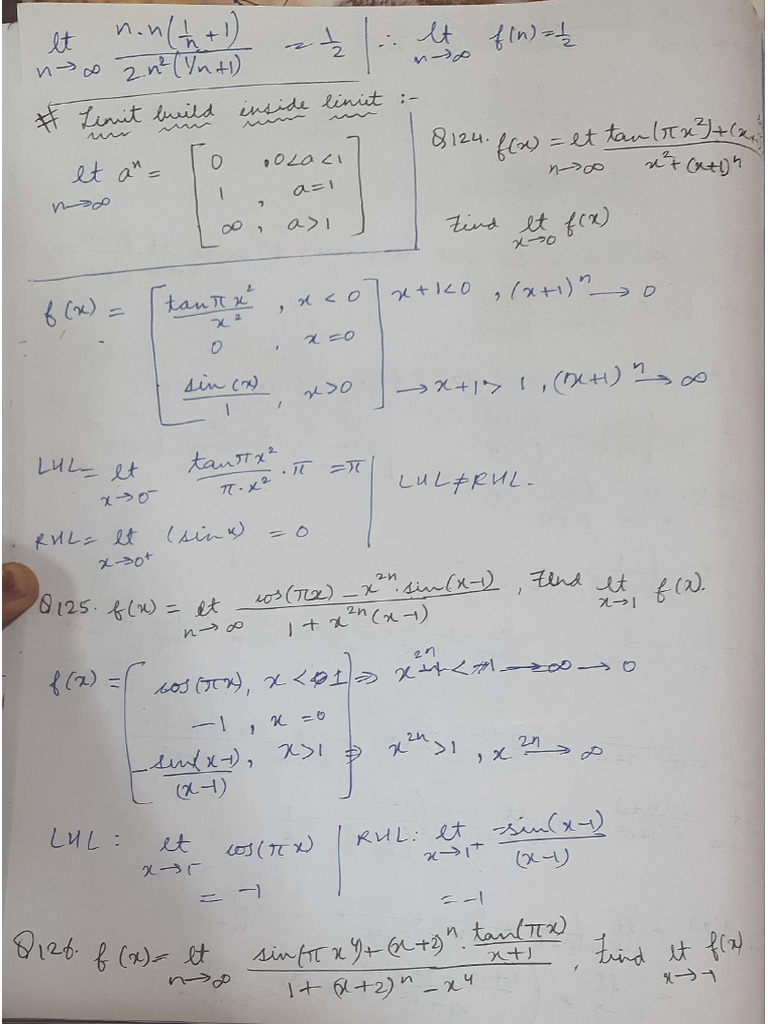 lt n→∞ n.n(1/n + 1) / 2n²(1/n + 1) = 1/2 | ∴ lt n→∞ f(n) = 1/2
# Limit build inside limit :-
lt n→∞ aⁿ = [ 0 , 0<a<1
1 , a=1
∞ , a>1 ]
Q124. f(x) = lt n→∞ tan(πx²)+(x+1)ⁿ / x²+(x+1)ⁿ
Find lt x→0 f(x)
f(x) = [ tanπx² / x² , x < 0 ] x+1<0 , (x+1)ⁿ → 0
0 , x=0
sin(x) / 1 , x>0 ] → x+1> 1 , (x+1)ⁿ → ∞
LHL= lt x→0⁻ tanπx² / π.x² . π = π | LHL≠RHL.
RHL= lt x→0⁺ (sinx) = 0
Q125. f(x) = lt n→∞ cos(πx) – x²ⁿ.sin(x-1) / 1 + x²ⁿ(x-1) , Find lt x→1 f(x).
f(x) = [ cos(πx), x < 1 ⇒ x²ⁿ < 1 → 0
-1 , x=0
-sin(x-1) / (x-1) , x>1 ] ⇒ x²ⁿ>1 , x²ⁿ → ∞
LHL : lt x→1⁻ cos(πx) | RHL: lt x→1⁺ -sin(x-1) / (x-1)
= -1 = -1
Q126. f(x)= lt n→∞ sin(πx⁴)+(x+2)ⁿ. tan(πx)/x+1 / 1+(x+2)ⁿ – x⁴ , Find lt x→-1 f(x)